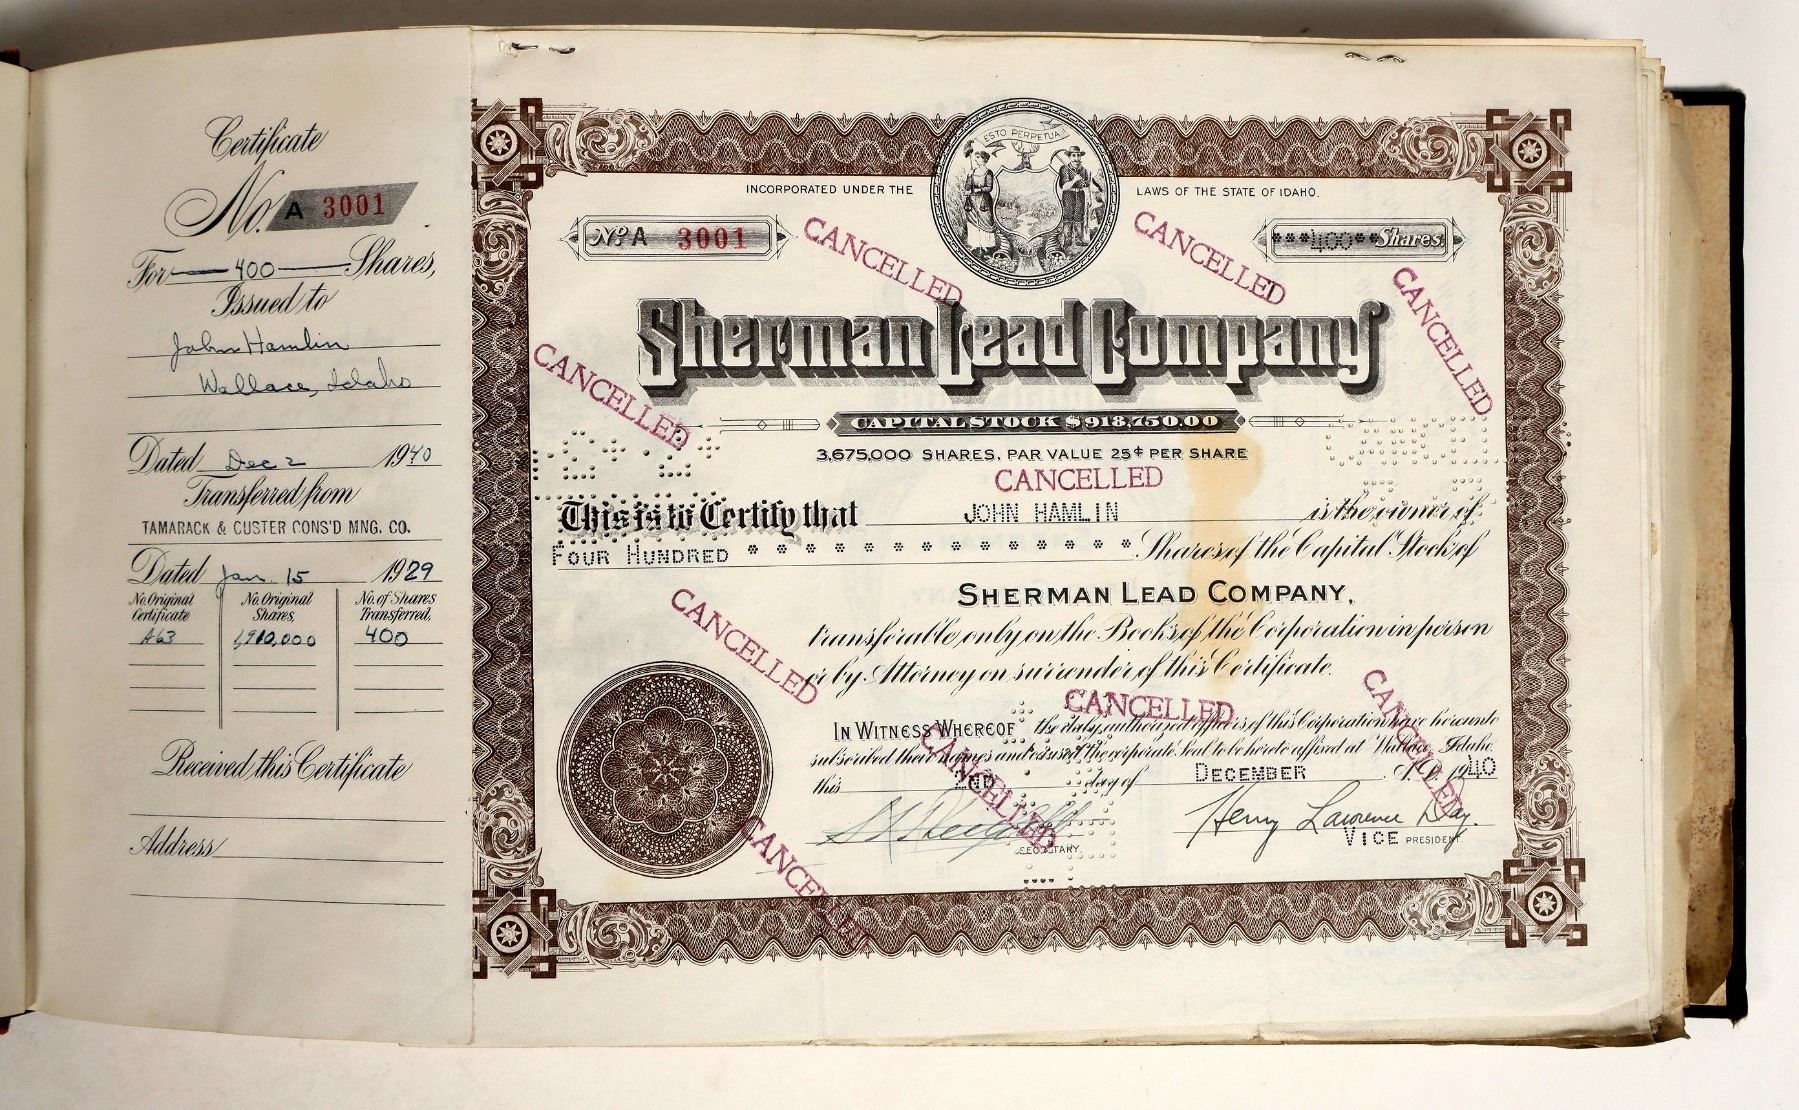 Certificate
No. A 3001
For 400 Shares,
Issued to
John Hamlin
Wallace, Idaho
Dated Dec 2 1940
Transferred from
TAMARACK & CUSTER CONS'D MNG. CO.
Dated Jan. 15 1929
No. Original Certificate
No. Original Shares,
No. of Shares Transferred,
A63 1,910,000 400
Received this Certificate
Address
ESTO PERPETUA
INCORPORATED UNDER THE LAWS OF THE STATE OF IDAHO.
No A 3001
***400** Shares.
CANCELLED
CANCELLED
CANCELLED
Sherman Lead Company
CANCELLED
CAPITAL STOCK $918,750.00
3,675,000 SHARES, PAR VALUE 25¢ PER SHARE
CANCELLED
This is to Certify that JOHN HAMLIN is the owner of
FOUR HUNDRED * * * * * * * * * * * * * * Shares of the Capital Stock of
SHERMAN LEAD COMPANY,
transferable only on the Books of the Corporation in person
or by Attorney on surrender of this Certificate.
CANCELLED
CANCELLED
CANCELLED
IN WITNESS WHEREOF the duly authorized officers of this Corporation have hereunto
subscribed their names and caused the corporate Seal to be hereto affixed at Wallace, Idaho.
this 2ND day of DECEMBER A.D. 1940
CANCELLED
Henry Lawrence Day.
SECRETARY.
VICE PRESIDENT
CANCELLED